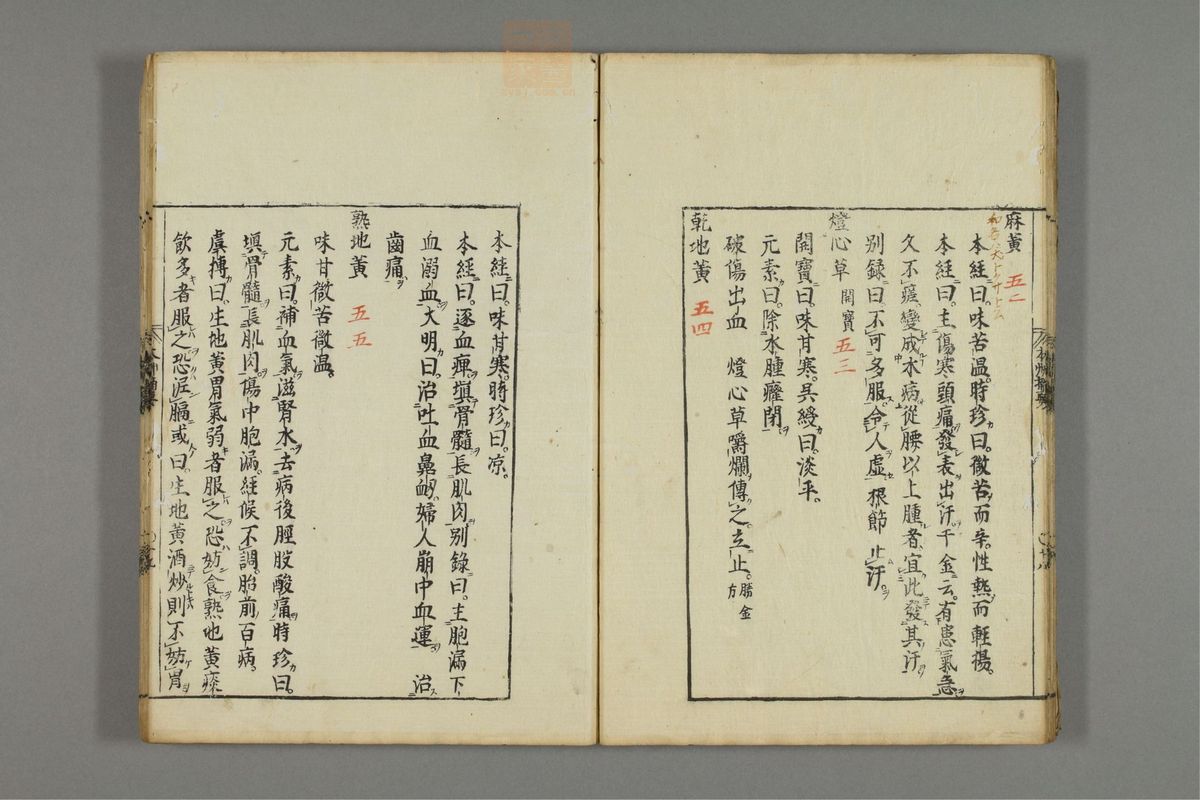 麻黃 五二
本經曰。味苦溫。時珍曰。微苦而辛。性熱而輕揚。
本經曰。主傷寒頭痛發表出汗。千金云。有患氣急
久不瘥。變成水病從腰以上腫者。宜此發其汗
別録曰。不可多服。令人虛。根節止汗。
燈心草 開寶 五三
開寶曰。味甘寒。吳綬曰。淡平。
元素曰。除水腫癃閉
破傷出血 燈心草嚼爛傅之。立止。勝金方
乾地黃 五四
本經曰。味甘寒。時珍曰。凉。
本經曰。逐血痺塡骨髓長肌肉。别錄曰。主胞漏下
血溺血。大明曰。治吐血鼻衂。婦人崩中血運 治
齒痛
熟地黃 五五
味甘微苦微溫。
元素曰。補血氣滋腎水。去病後脛股酸痛。時珍曰。
塡骨髓長肌肉。傷中胞漏。經候不調胎前百病。
虞摶曰。生地黃胃氣弱者服之恐妨食熟地黃痰
飲多者服之恐泥膈或曰。生地黃酒炒則不妨胃